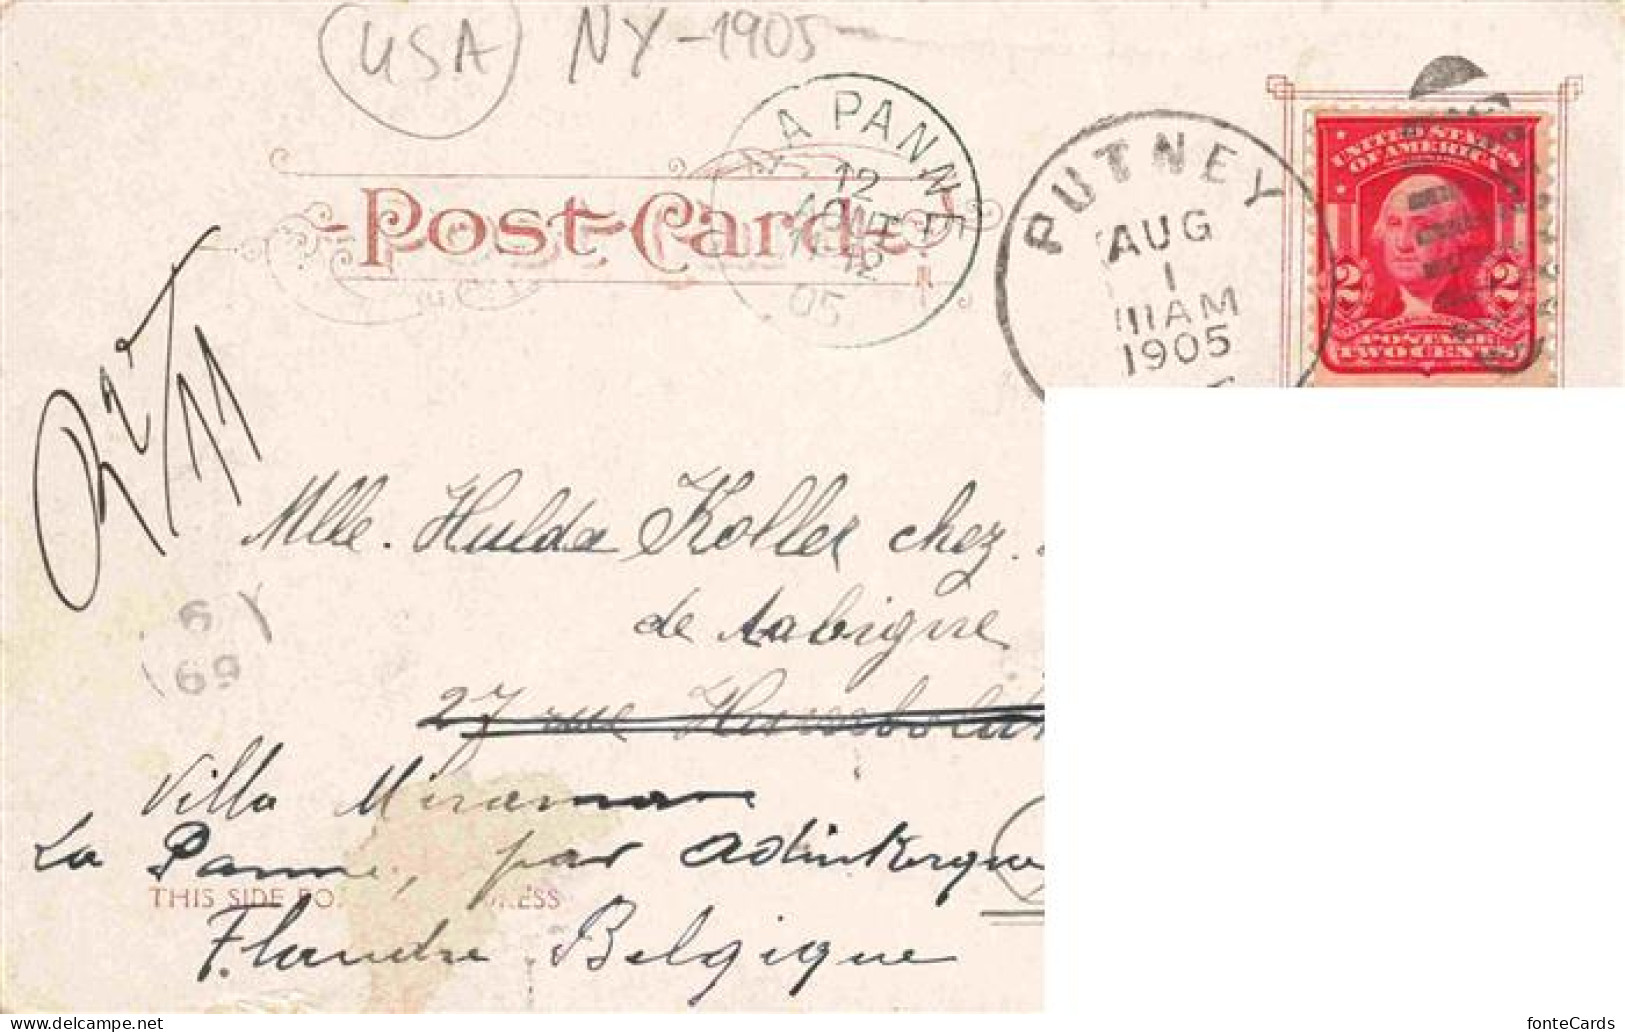 USA NY-1905
LA PANNE
12
AOUT
12
05
PUTNEY
AUG
1
11AM
1905
UNITED STATES
OF AMERICA
2 2
POSTAGE
TWO CENTS
Post Card
11
Mlle. Hulda Koller chez.
de Aabigne
27 rue
69
Villa Miramar
La Panne, par Adinkerque
THIS SIDE FO
RESS
Flandre Belgique
fonteCards
www.delcampe.net